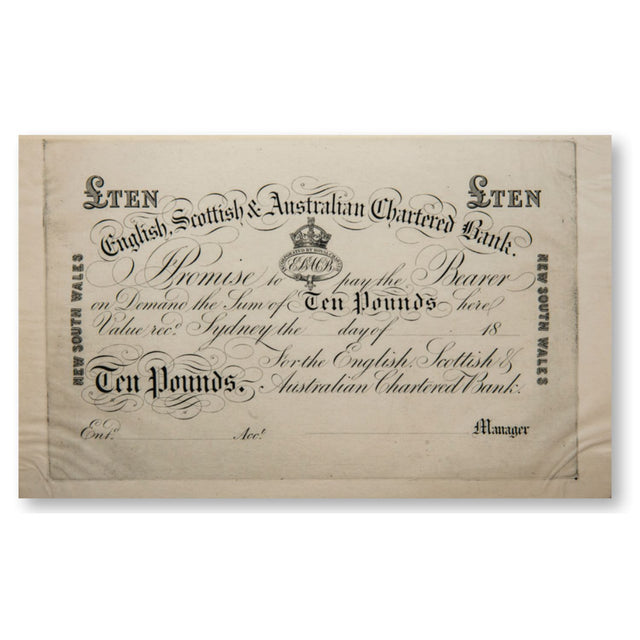 £TEN £TEN
English, Scottish & Australian Chartered Bank.
INCORPORATED BY ROYAL CHARTER
I Promise to pay the Bearer
on Demand the Sum of Ten Pounds here
Value recd. Sydney the day of 18
For the English, Scottish &
Ten Pounds. Australian Chartered Bank.
Entd. Acct. Manager
NEW SOUTH WALES
NEW SOUTH WALES